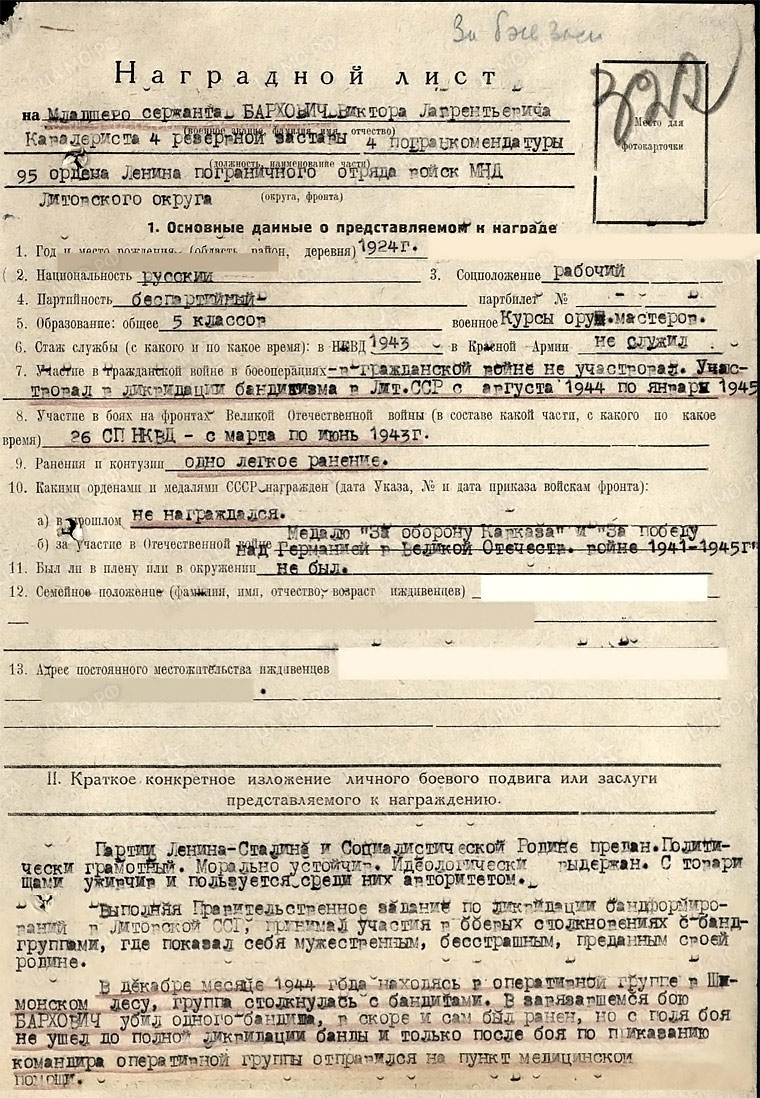 За бж заси
322
Наградной лист
на Младшего сержанта БАРХОВИЧ Виктора Лаврентьевича
(военное звание, фамилия, имя, отчество)
Кавалериста 4 резервной заставы 4 погранкомендатуры
(должность, наименование части)
95 ордена Ленина пограничного отряда войск МВД
Литовского округа (округа, фронта)
Место для
фотокарточки
1. Основные данные о представляемом к награде
1. Год и место рождения (область, район, деревня) 1924г.
2. Национальность русский 3. Соцположение рабочий
4. Партийность беспартийный партбилет № - - -
5. Образование: общее 5 классов военное Курсы оруж.мастеров.
6. Стаж службы (с какого и по какое время): в НКВД 1943 в Красной Армии не служил
7. Участие в гражданской войне в боеоперациях - в гражданской войне не участвовал. Участ-
твовал в ликвидации бандитизма в Лит.ССР с августа 1944 по январь 1945
8. Участие в боях на фронтах Великой Отечественной войны (в составе какой части, с какого по какое
время) 26 СП НКВД - с марта по июнь 1943г.
9. Ранения и контузии одно легкое ранение.
10. Какими орденами и медалями СССР награжден (дата Указа, № и дата приказа войскам фронта):
а) в прошлом не награждался.
б) за участие в Отечественной войне Медалю "За оборону Кавказа" и "За победу
над Германией в Великой Отечеств. войне 1941-1945г"
11. Был ли в плену или в окружении не был.
12. Семейное положение (фамилия, имя, отчество, возраст иждивенцев)
13. Адрес постоянного местожительства иждивенцев
II. Краткое конкретное изложение личного боевого подвига или заслуги
представляемого к награждению.
Партии Ленина-Сталина и Социалистической Родине предан. Полити-
чески грамотный. Морально устойчив. Идеологически выдержан. С товари
щами уживчив и пользуется среди них авторитетом.
Выполняя Правительственное задание по ликвидации бандформиро-
ваний в Литовской ССР, принимал участия в боевых столкновениях с банд-
группами, где показал себя мужественным, бесстрашным, преданным своей
родине.
В декабре месяце 1944 года находясь в оперативной группе в Ши-
монском лесу, группа столкнулась с бандитами. В завязавшемся бою
БАРХОВИЧ убил одного бандита, в скоре и сам был ранен, но с поля боя
не ушел до полной ликвидации банды и только после боя по приказанию
командира оперативной группы отправился на пункт медицинской
помощи.